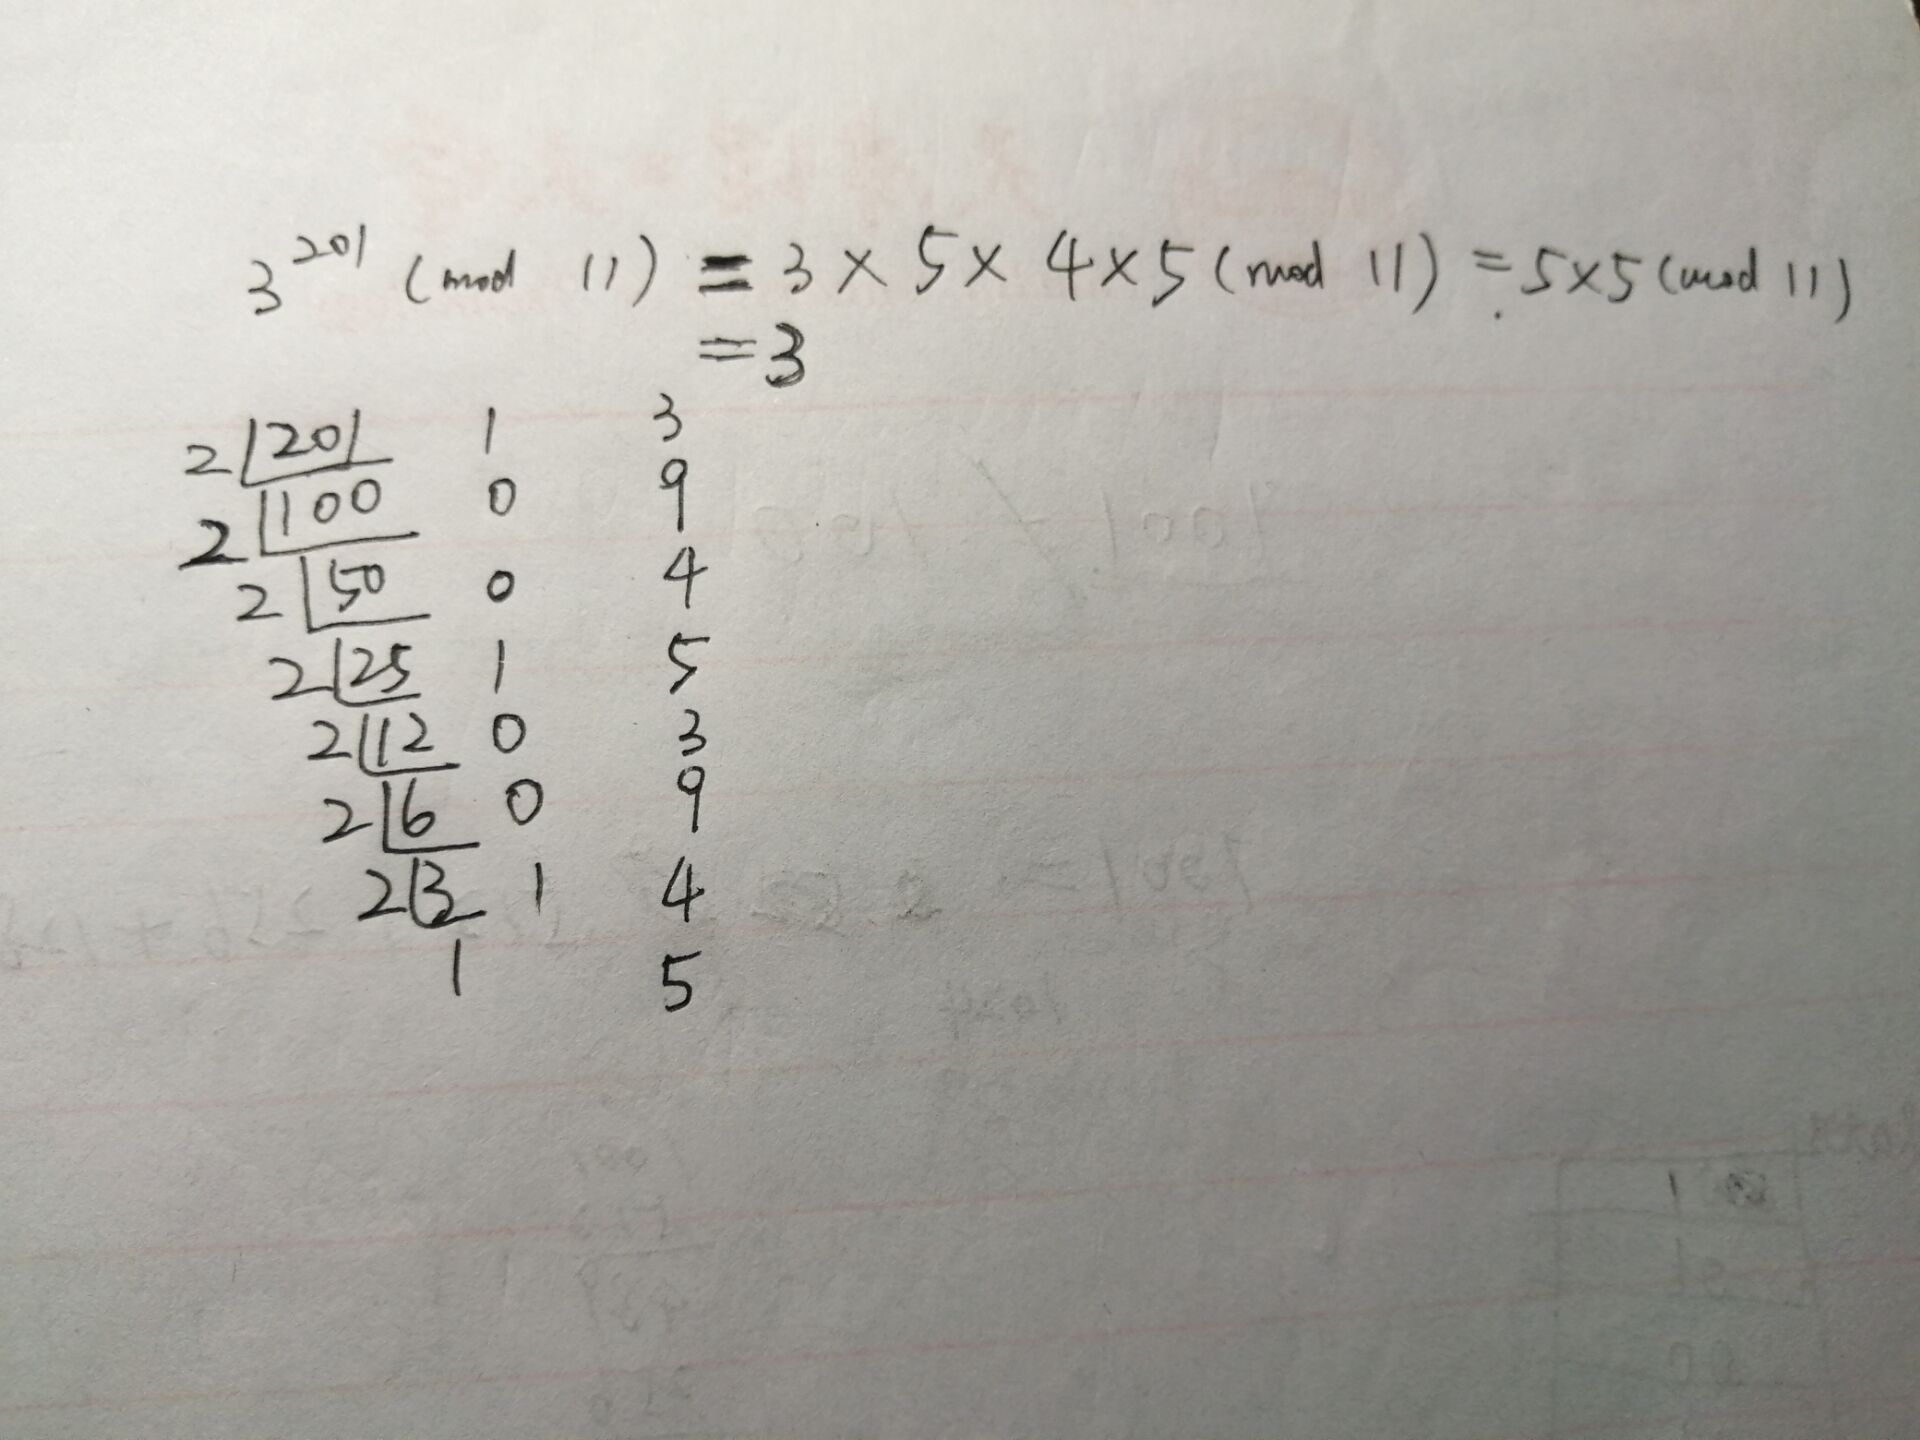 3^201 (mod 11) = 3 × 5 × 4 × 5 (mod 11) = 5×5 (mod 11)
= 3
2 201 1 3
2 100 0 9
2 50 0 4
2 25 1 5
2 12 0 3
2 6 0 9
2 3 1 4
1 5